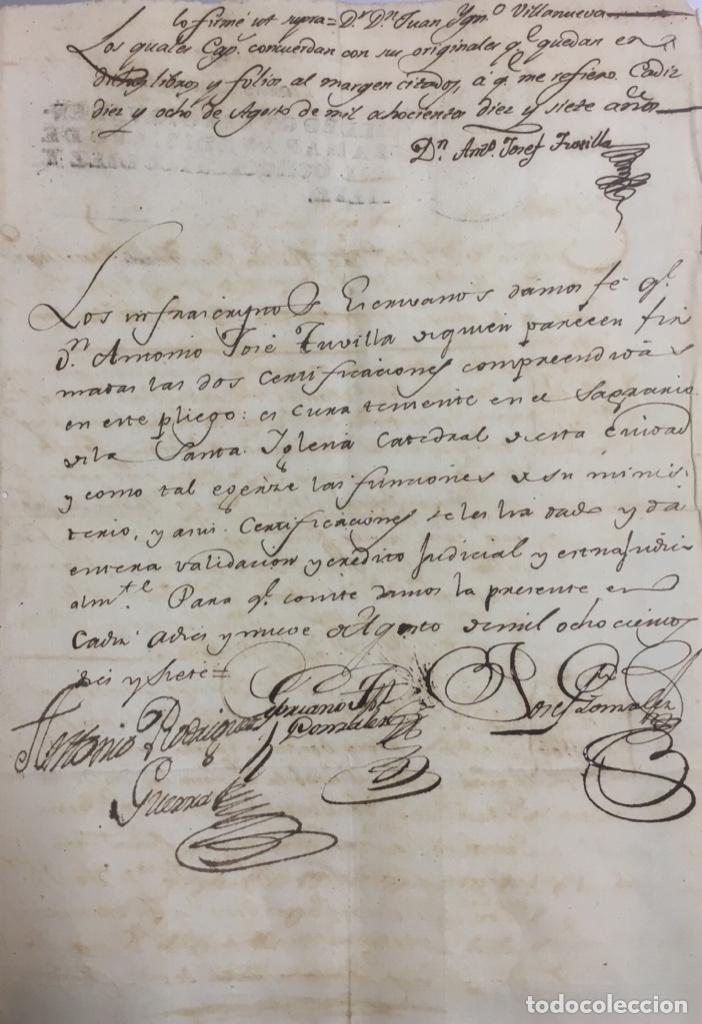 lo firmé ut supra = Dr. Dn. Juan Ygno Villanueva
Los quales Cap. concuerdan con sus originales qe quedan en
dichos libros y folios al margen citados, á q. me refiero. Cadiz
diez y ocho de Agosto de mil ochocientos diez y siete años
Dn. Anto. Josef Tuvilla
Los infraescriptos Escrivanos damos fé ql.
Dn. Antonio José Tuvilla de quien parecen fir
madas las dos Certificaciones comprendidas
en este pliego: es Cura teniente en el Sagrario
de la Santa Iglesia Catedral de esta Ciudad
y como tal egerze las funciones de su minis
terio, y a sus Certificaciones se les ha dado y dá
entera validacion y credito judicial y extrajudici
almte. Para ql. conste damos la presente en
Cadiz a diez y nueve de Agosto de mil ochocientos
diez y siete =
Antonio Rodriguez
Guerra
Cipriano Jph
Gonzalez
Josef Gonzalez
todocoleccion